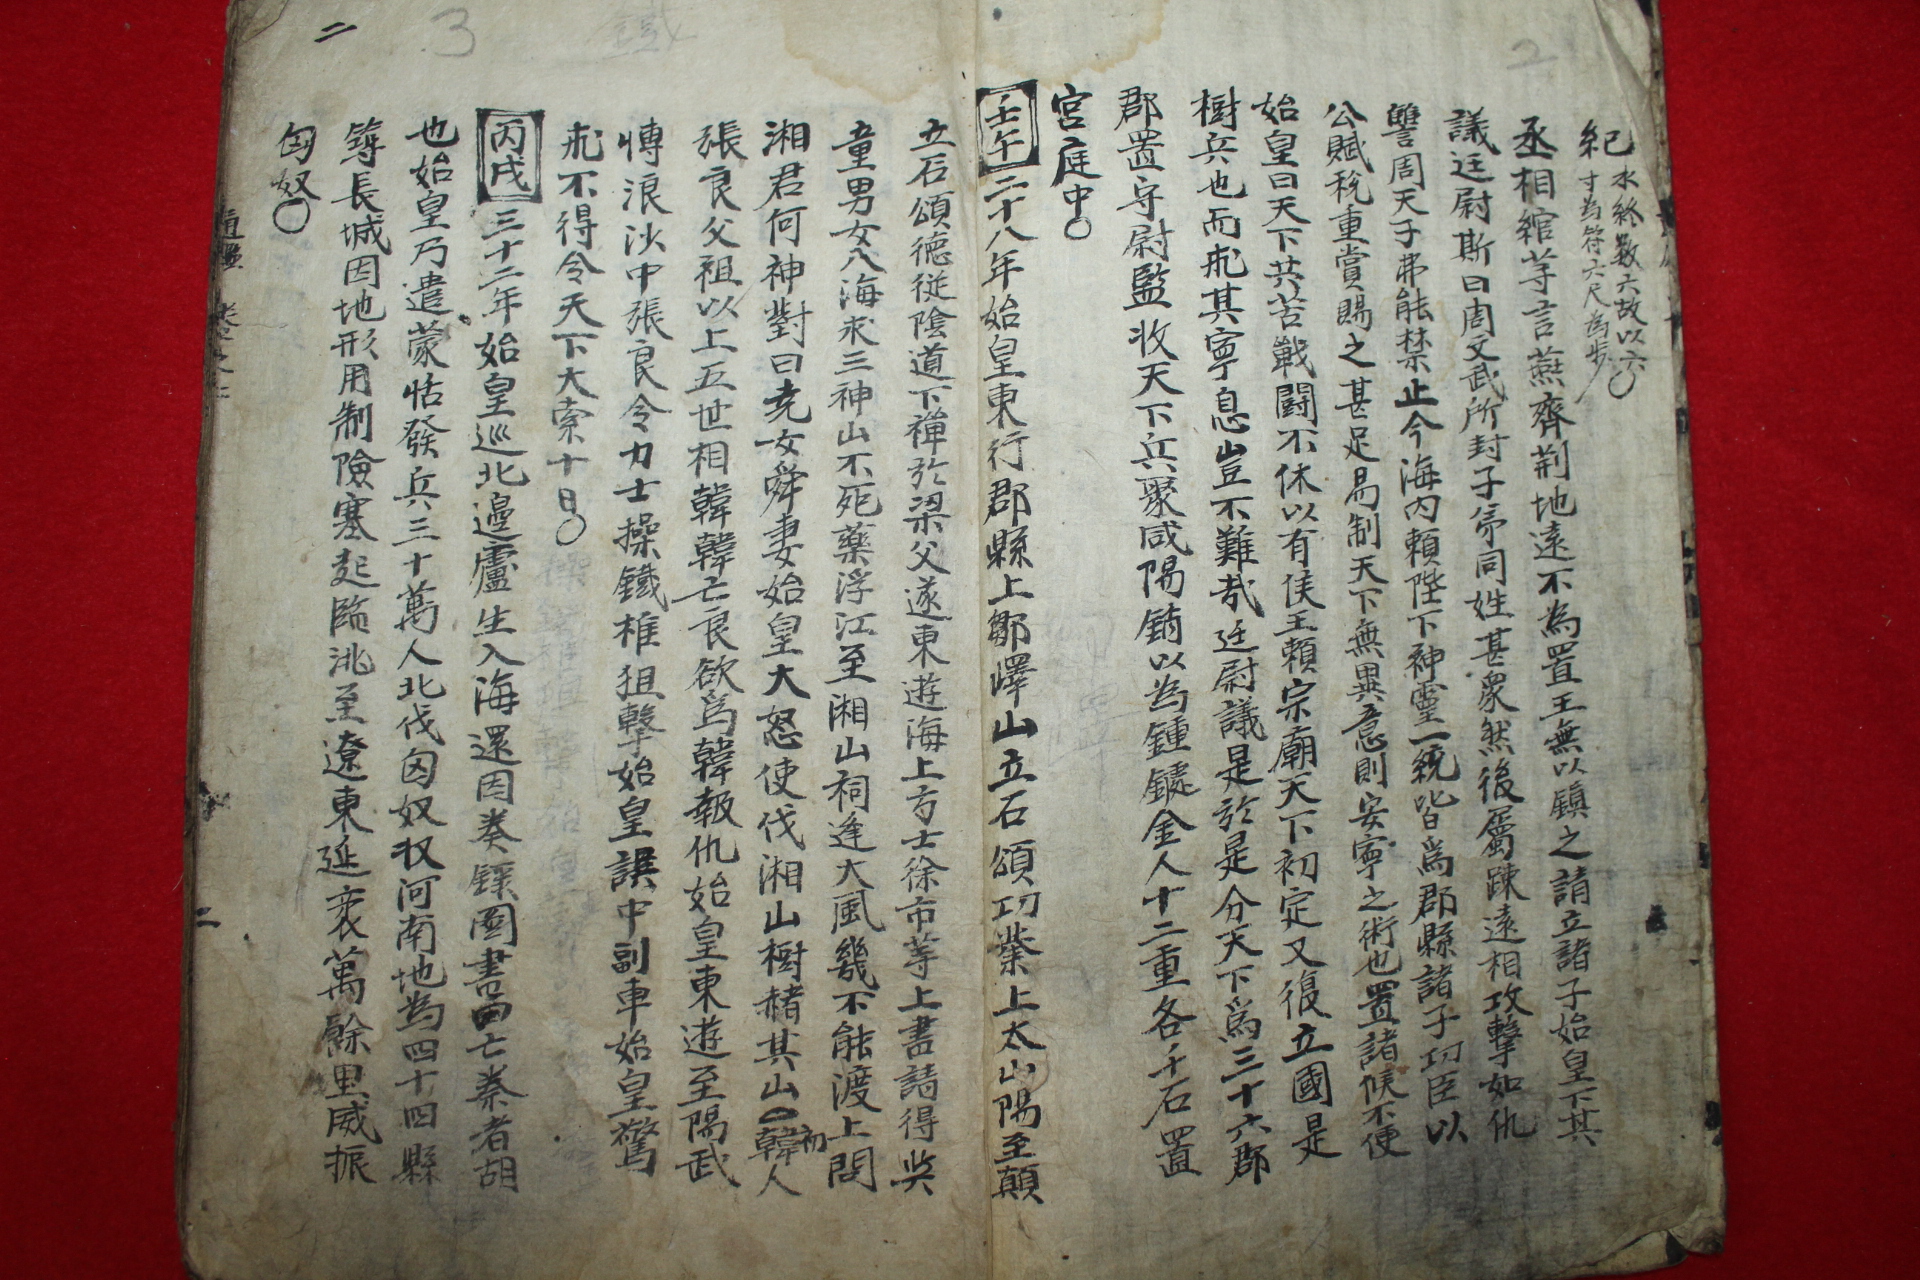 2
紀 水終数六故以六
寸為符六尺為步○
丞相綰等言燕齊荊地遠不為置王無以鎮之請立諸子始皇下其
議廷尉斯曰周文武所封子弟同姓甚衆然後屬踈遠相攻擊如仇
讐周天子弗能禁止今海內賴陛下神靈一統皆爲郡縣諸子功臣以
公賦税重賞賜之甚足易制天下無異意則安寧之術也置諸候不便
始皇曰天下共苦戰鬪不休以有侯王賴宗廟天下初定又復立國是
樹兵也而求其寧息豈不難哉廷尉議是於是分天下爲三十六郡
郡置守尉監收天下兵聚咸陽銷以為鍾鐻金人十二重各千石置
宮庭中○
壬午二十八年始皇東行郡縣上鄒嶧山立石頌功業上太山陽至顛
立石頌德従陰道下禅於梁父遂東遊海上方士徐市等上書請得與
童男女入海求三神山不死藥浮江至湘山祠逢大風幾不能渡上問
湘君何神對曰堯女舜妻始皇大怒使伐湘山樹赭其山○初韓人
張良父祖以上五世相韓韓亡良欲爲韓報仇始皇東遊至陽武
博浪沙中張良令力士操鐵椎狙擊始皇誤中副車始皇驚
求不得令天下大索十日○
丙戌三十二年始皇巡北邊盧生入海還因奏錄圖書曰亡秦者胡
也始皇乃遣蒙恬發兵三十萬人北伐匈奴收河南地為四十四縣
築長城因地形用制險塞起臨洮至遼東延袤萬餘里威振
匈奴○
3
鐵
二
通鑑
二